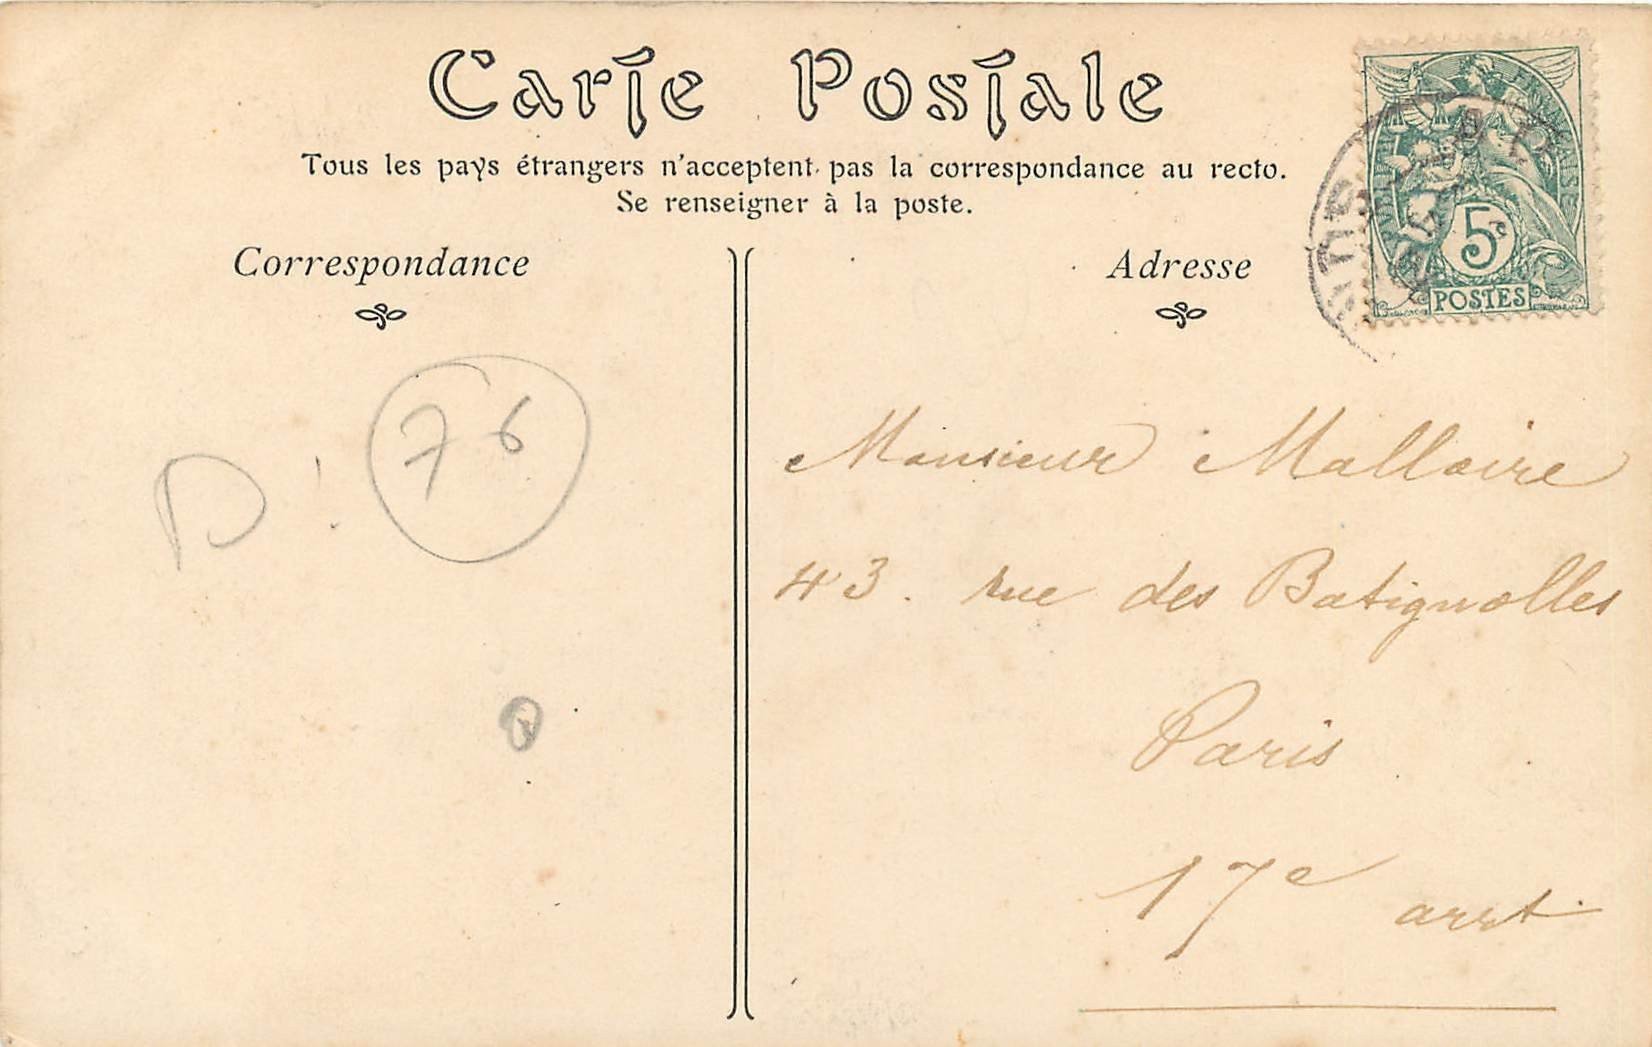 Carte Postale
Tous les pays étrangers n'acceptent pas la correspondance au recto.
Se renseigner à la poste.
Correspondance
Adresse
5c
POSTES
D
76
Monsieur Mallaire
43. rue des Batignolles
Paris
17e arrt.